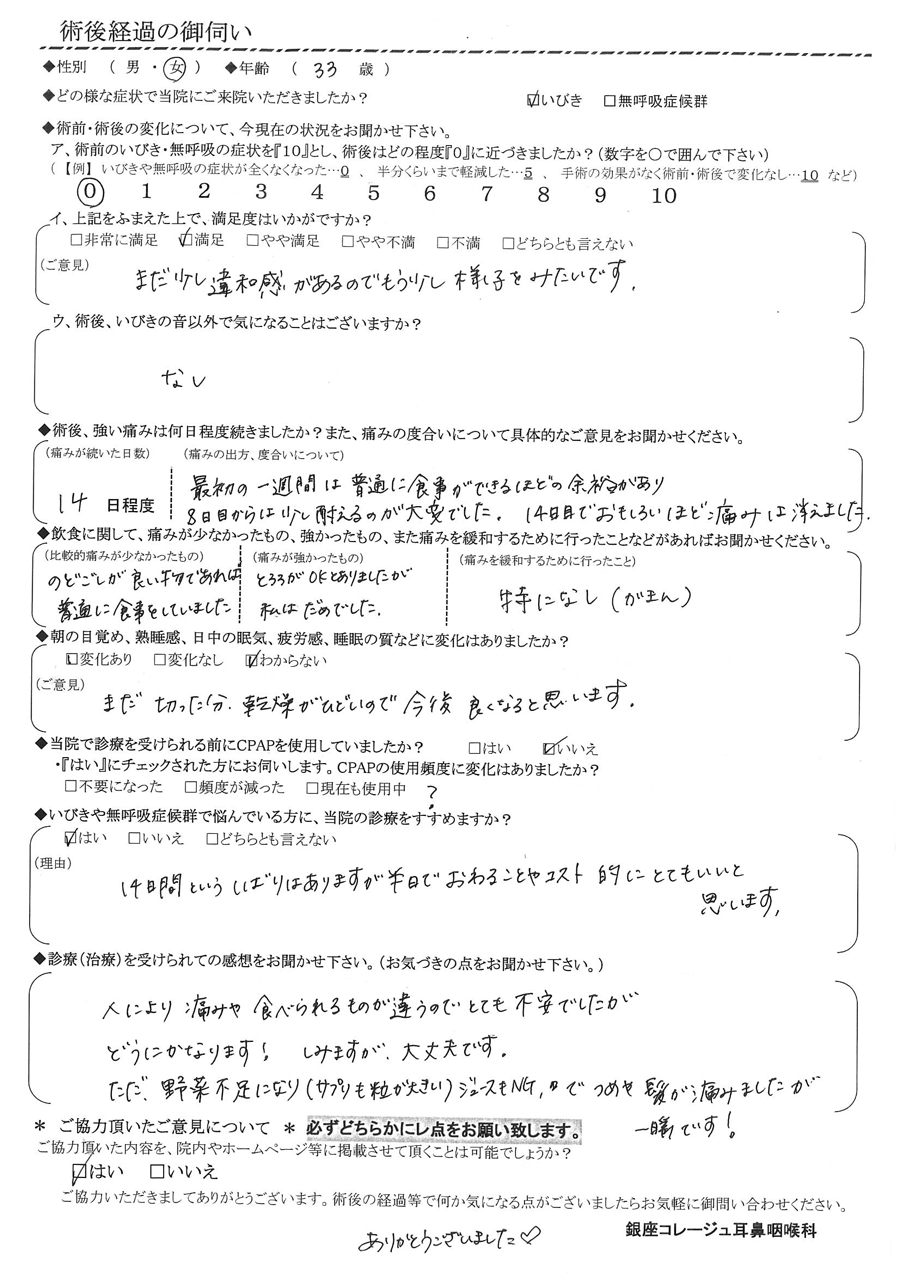 術後経過の御伺い
◆性別 ( 男 ・ 女 ) ◆年齢 ( 33 歳 )
◆どの様な症状で当院にご来院いただきましたか? ☑いびき □無呼吸症候群
◆術前・術後の変化について、今現在の状況をお聞かせ下さい。
ア、術前のいびき・無呼吸の症状を『10』とし、術後はどの程度『0』に近づきましたか?(数字を○で囲んで下さい)
(【例】 いびきや無呼吸の症状が全くなくなった…0 、 半分くらいまで軽減した…5 、 手術の効果がなく術前・術後で変化なし…10 など)
0 1 2 3 4 5 6 7 8 9 10
イ、上記をふまえた上で、満足度はいかがですか?
□非常に満足 ☑満足 □やや満足 □やや不満 □不満 □どちらとも言えない
(ご意見)
まだ少し違和感があるのでもう少し様子をみたいです。
ウ、術後、いびきの音以外で気になることはございますか?
なし
◆術後、強い痛みは何日程度続きましたか?また、痛みの度合いについて具体的なご意見をお聞かせください。
(痛みが続いた日数) (痛みの出方、度合いについて)
14 日程度
最初の一週間は普通に食事ができるほどの余裕があり
8日目からは少し耐えるのが大変でした。 14日目でおもしろいほど痛みは消えました。
◆飲食に関して、痛みが少なかったもの、強かったもの、また痛みを緩和するために行ったことなどがあればお聞かせください。
(比較的痛みが少なかったもの) (痛みが強かったもの) (痛みを緩和するために行ったこと)
のどごしが良い物であれば
普通に食事をしていました
とろろがOKとありましたが
私はだめでした。
特になし(がまん)
◆朝の目覚め、熟睡感、日中の眠気、疲労感、睡眠の質などに変化はありましたか?
□変化あり □変化なし ☑わからない
(ご意見)
まだ切った分、乾燥がひどいので今後良くなると思います。
◆当院で診療を受けられる前にCPAPを使用していましたか? □はい ☑いいえ
・『はい』にチェックされた方にお伺いします。CPAPの使用頻度に変化はありましたか?
□不要になった □頻度が減った □現在も使用中 ?
◆いびきや無呼吸症候群で悩んでいる方に、当院の診療をすすめますか?
☑はい □いいえ □どちらとも言えない
(理由)
14日間というしばりはありますが半日でおわることやコスト的にとてもいいと
思います。
◆診療(治療)を受けられての感想をお聞かせ下さい。(お気づきの点をお聞かせ下さい。)
人により痛みや食べられるものが違うのでとても不安でしたが
どうにかなります! しみますが、大丈夫です。
ただ、野菜不足になり(サプリも粒が大きい)ジュースもNG、でつめや髪が痛みましたが
一瞬です!
* ご協力頂いたご意見について * 必ずどちらかにレ点をお願い致します。
ご協力頂いた内容を、院内やホームページ等に掲載させて頂くことは可能でしょうか?
☑はい □いいえ
ご協力いただきましてありがとうございます。術後の経過等で何か気になる点がございましたらお気軽に御問い合わせください。
ありがとうございました♡
銀座コレージュ耳鼻咽喉科